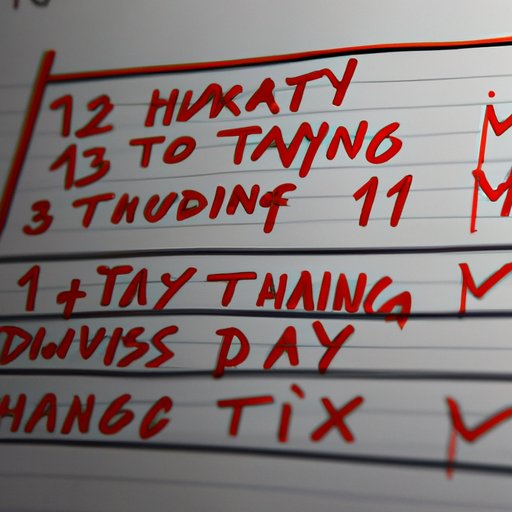 12 HVKATY
13 TO TAYNG
3 THUDING 11
1 + TAY THANG
DINVISS DAY
HANGC TIX